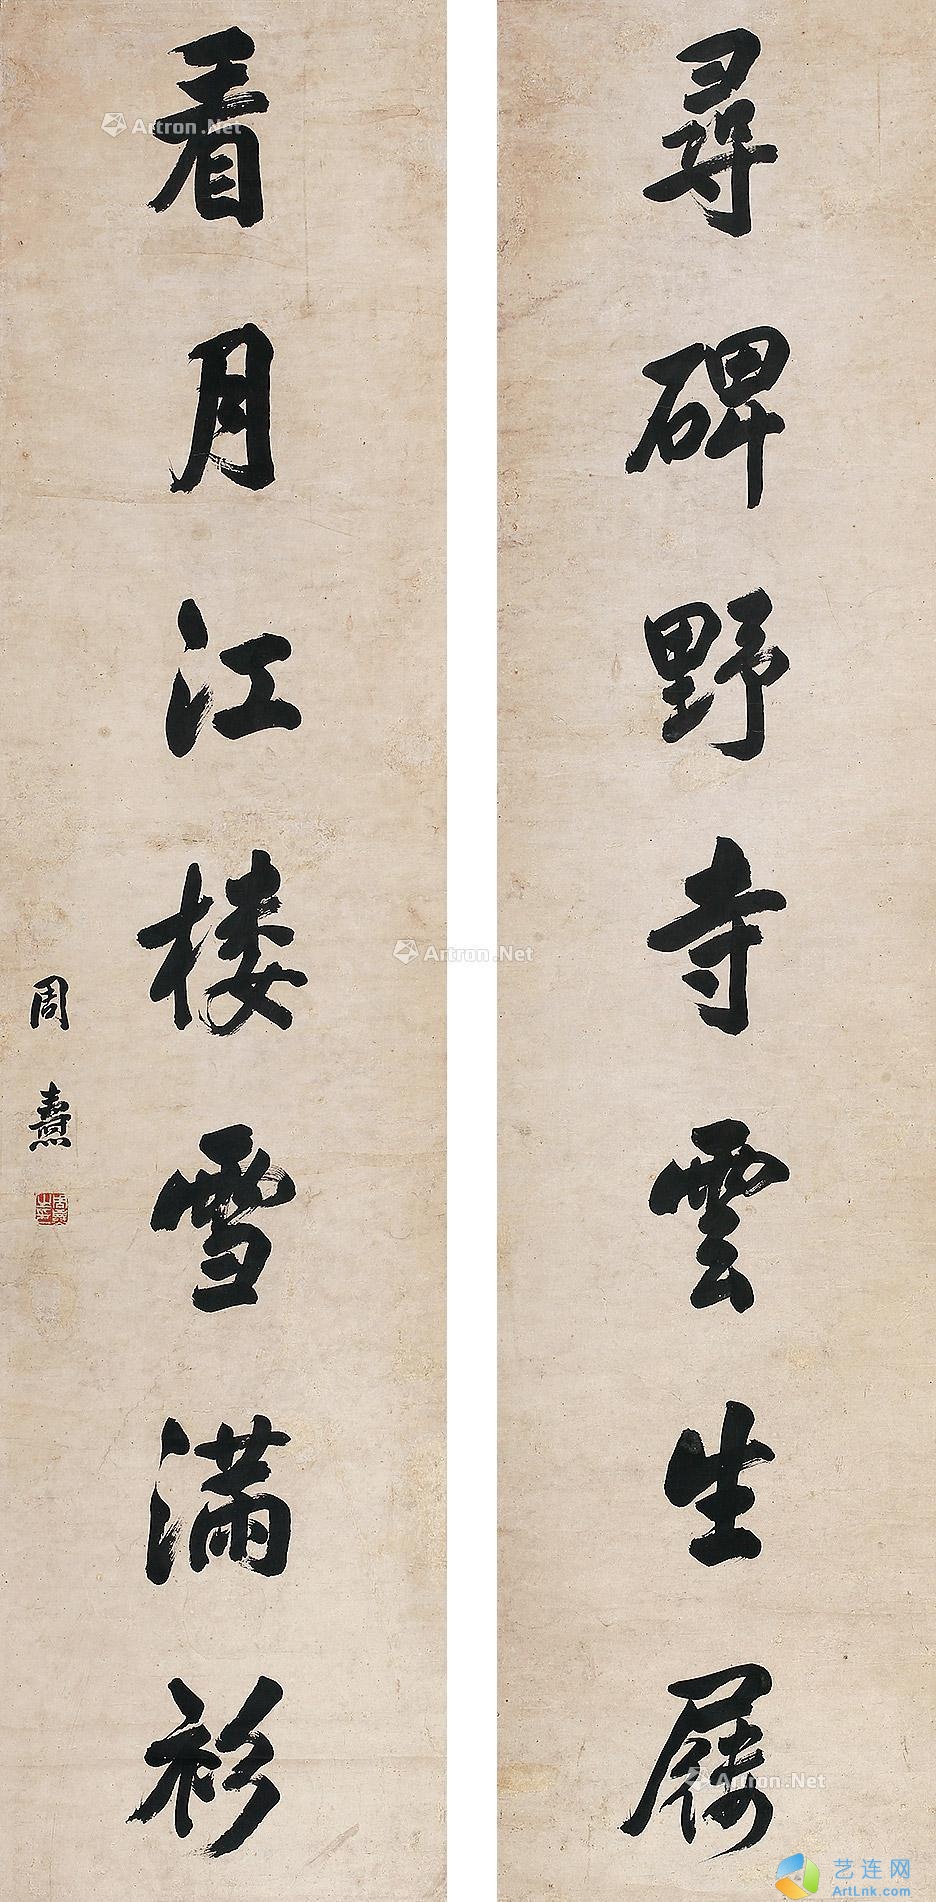 尋碑野寺雲生屨
看月江樓雪滿衫
周燾
Artron.Net
Artron.Net
Artron.Net
艺连网
ArtLnk.com